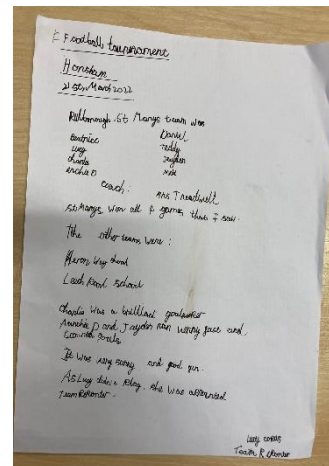 Football tournament
Horsham
25th March 2022
Pulborough St Marys team was
Beatrice Daniel
Lucy Teddy
Charlie Jayden
Archie D
Coach: Mrs Treadwell
St Marys won all games that I saw.
The other teams were:
Heron Way school
Leech Pool school
Charlie was a brilliant goalkeeper
Archie D and Jayden ran very fast and
goals
It was very sunny and good fun.
As Lucy didn't play, she was
Team Reporter.
Lucy
Team Reporter